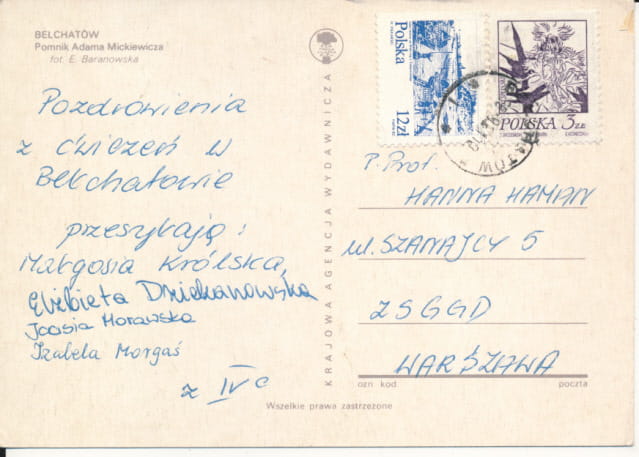 BEŁCHATÓW
Pomnik Adama Mickiewicza
fot. E. Baranowska
Pozdrowienia
z ćwiczeń w
Bełchatowie
przesyłają:
Małgosia Królska
Elżbieta Dziekanowska
Joasia Morawska
Izabela Morgaś
z IV c
KRAJOWA AGENCJA WYDAWNICZA
Polska
12zł
POLSKA 3 ZŁ
P. Prof.
HANNA HAMAN
ul. SZANAJCY 5
ZSGGD
WARSZAWA
ozn kod poczta
Wszelkie prawa zastrzeżone